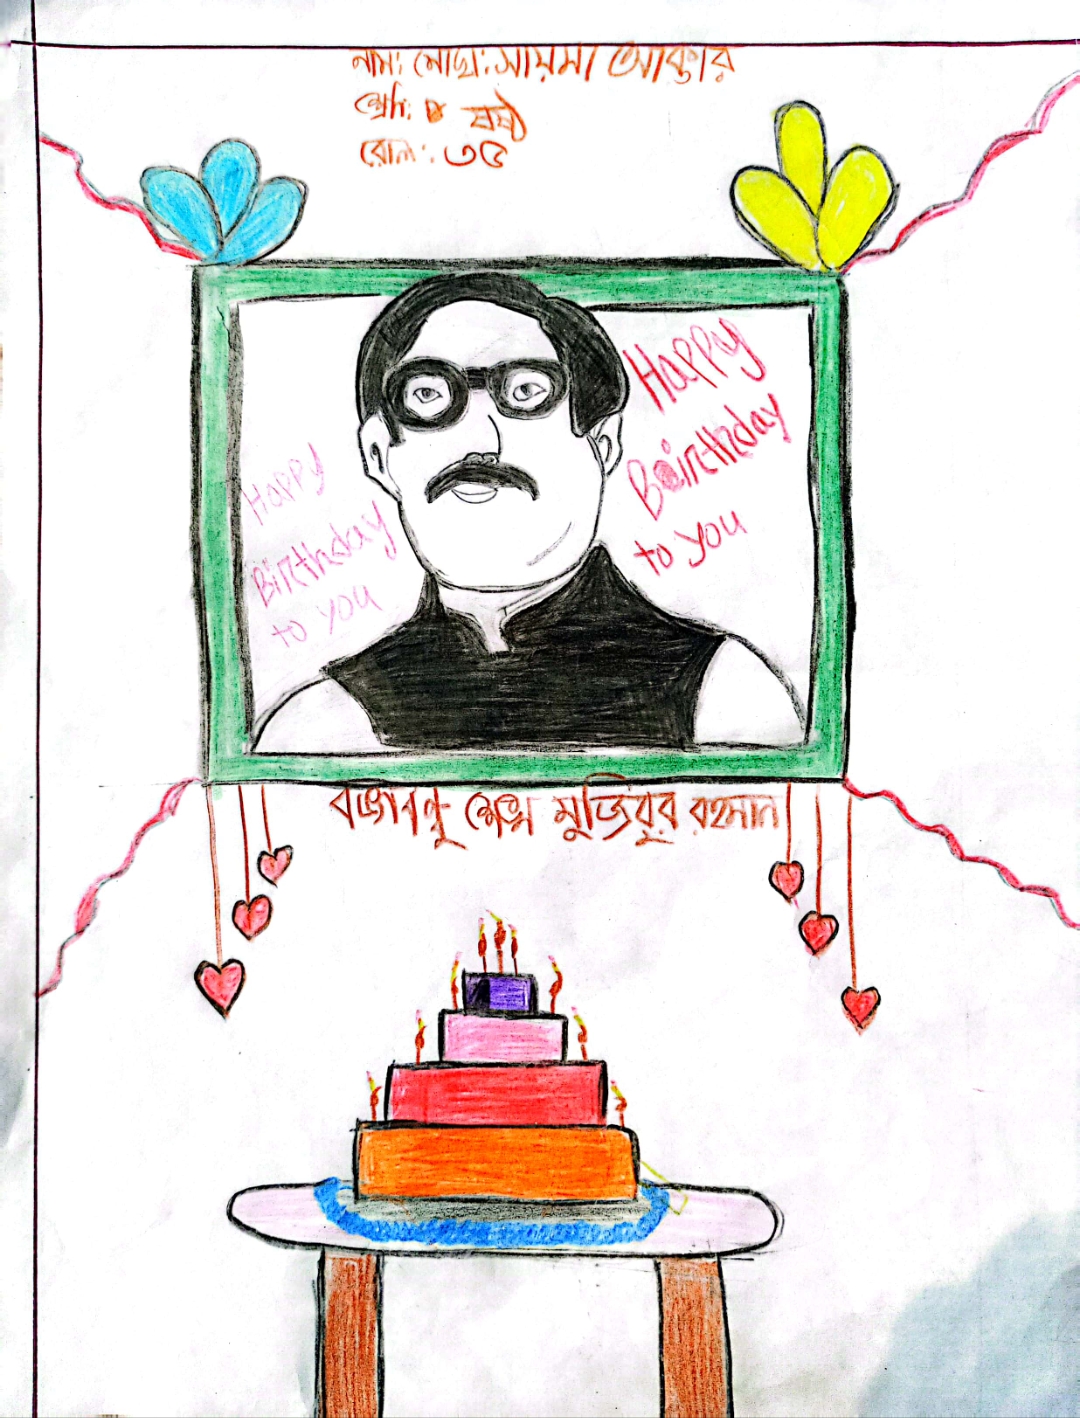 নাম: মোছা: সায়মা আক্তার
শ্রেণি: ষষ্ঠ
রোল: ৩৫
Happy
Birthday
to you
Happy
Bairthday
to you
বঙ্গবন্ধু শেখ মুজিবুর রহমান